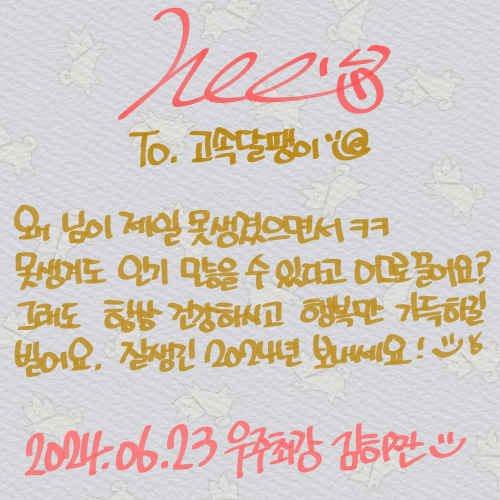 To. 고속달팽이
왜 님이 제일 못생겼으면서 ㅋㅋ
못생겨도 인기 많을 수 있다고 어그로 끌어요?
그래도 항상 건강하시고 행복만 가득하길
빌어요. 잘생긴 2024년 보내세요!
2024.06.23 우주최강